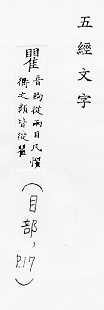 五經文字
瞿 音句從兩目凡懼
衢之類皆從瞿
(目部, P.17)